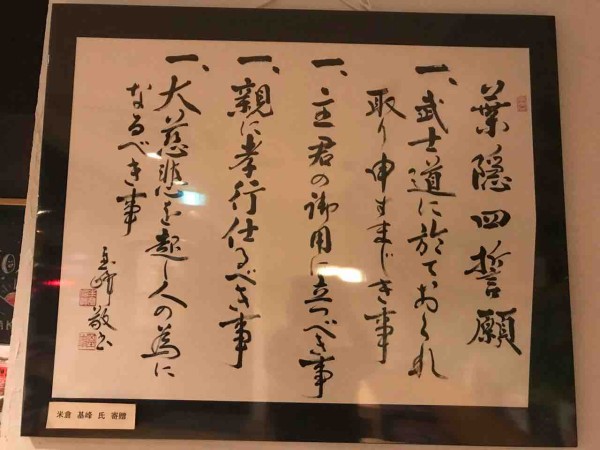 葉隠四誓願
一、武士道に於ておくれ
取り申すまじき事
一、主君の御用に立つべき事
一、親に孝行仕るべき事
一、大慈悲を起し人の為に
なるべき事
米倉 基峰 氏 寄贈